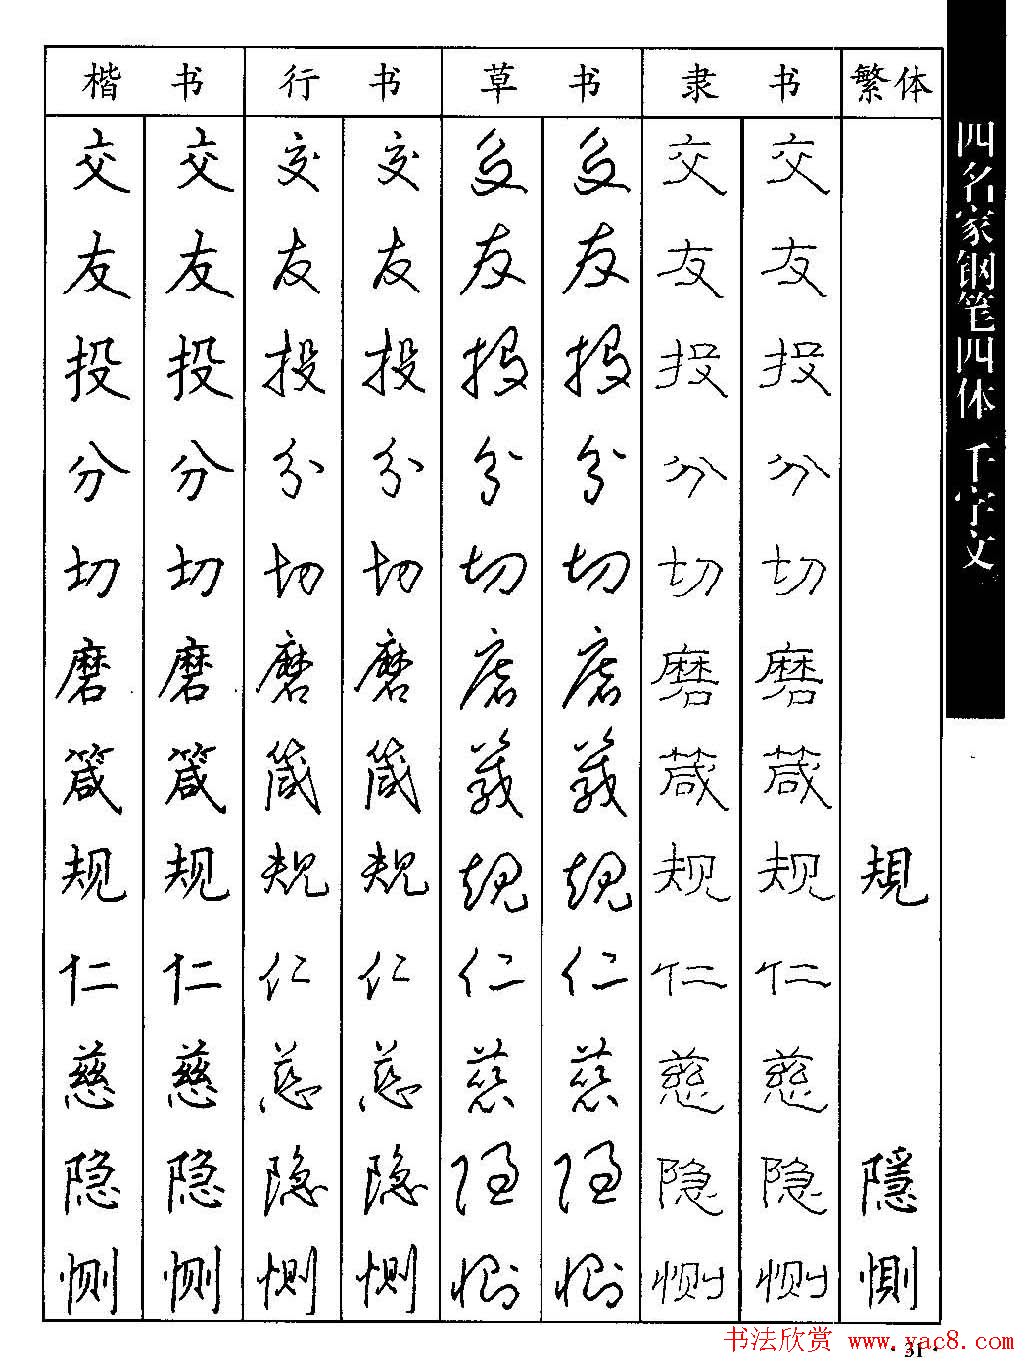 楷书 行书 草书 隶书 繁体
交 交 交 交 交 交 交 交
友 友 友 友 友 友 友 友
投 投 投 投 投 投 投 投
分 分 分 分 分 分 分 分
切 切 切 切 切 切 切 切
磨 磨 磨 磨 磨 磨 磨 磨
箴 箴 箴 箴 箴 箴 箴 箴
规 规 規 規 規 規 规 规 規
仁 仁 仁 仁 仁 仁 仁 仁
慈 慈 慈 慈 慈 慈 慈 慈
隐 隐 隐 隐 隐 隐 隐 隐 隱
恻 恻 惻 惻 恻 恻 恻 恻 惻
四名家钢笔四体 千字文
书法欣赏 www.yac8.com
·31·